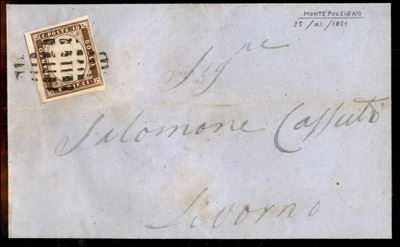 MONTEPULCIANO
25 / XI / 1861
C. POSTE 10
Sig.re
Salomone Cassuto
Livorno